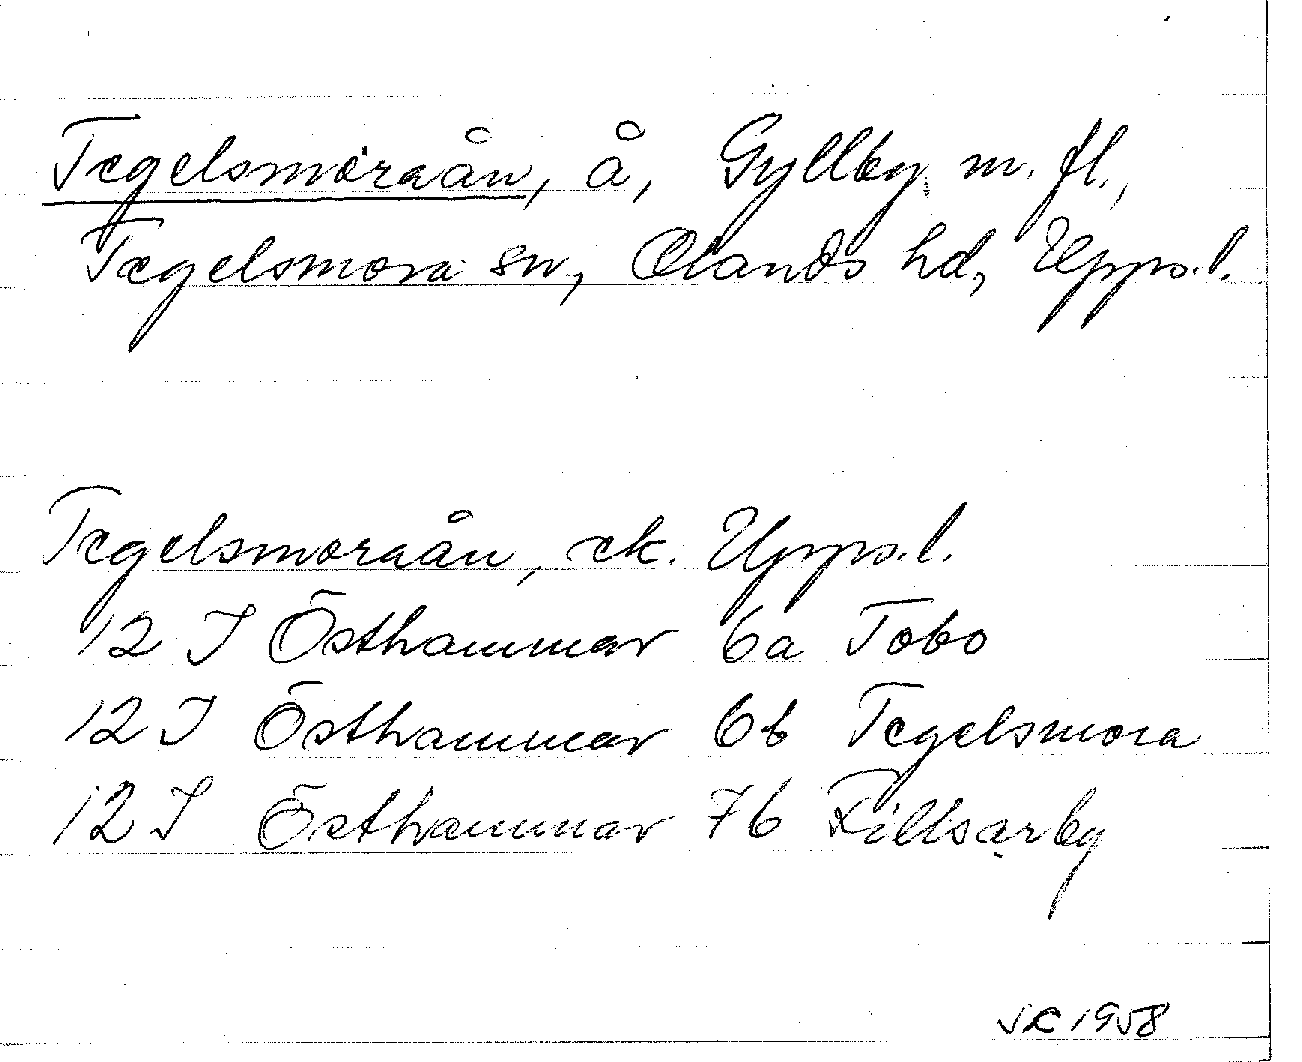 Tegelsmoraån, å, Gyllby m. fl.,
Tegelsmora sn, Olands hd, Upps. l.
Tegelsmoraån, ek. Upps. l.
12 I Östhammar 6a Tobo
12 I Östhammar 6b Tegelsmora
12 I Östhammar 7b
1958